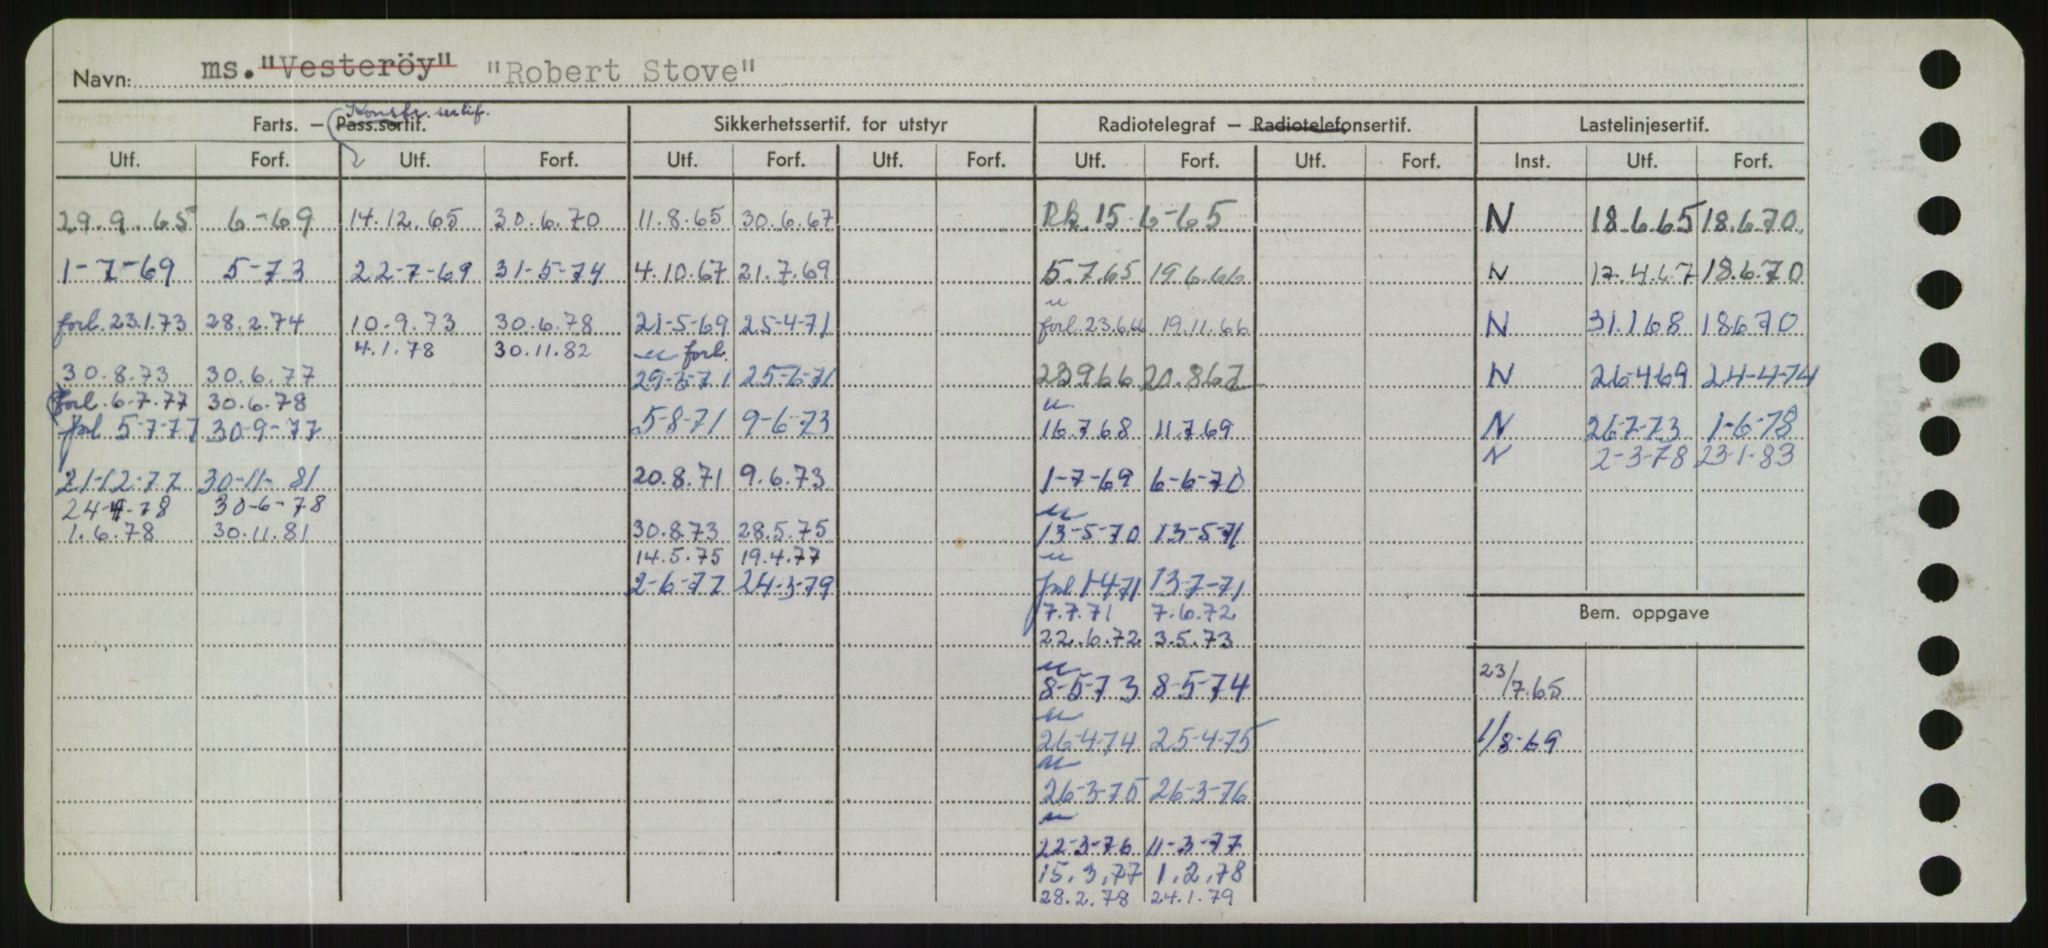 Navn: ms. "Vesteröy" "Robert Stove"
Konstr. sertif.
Farts. – Pass.sertif. Sikkerhetssertif. for utstyr Radiotelegraf – Radiotelefonsertif. Lastelinjesertif.
Utf. Forf. Utf. Forf. Utf. Forf. Utf. Forf. Utf. Forf. Utf. Forf. Inst. Utf. Forf.
29.9.65 6-69 14.12.65 30.6.70 11.8.65 30.6.67 Rk. 15 6-65 N 18.6.65 18.6.70
1-7-69 5-73 22-7-69 31-5-74 4.10.67 21.7.69 5.7.65 19.6.66 N 17.4.67 18.6.70
forl. 23.1.73 28.2.74 10.9.73 30.6.78 21-5-69 25-4-71 forl. 23.6.66 19.11.66 N 31.1.68 18.6.70
4.1.78 30.11.82 forl.
30.8.73 30.6.77 25-6-71 23966 20.867 N 26-4-69 24-4-74
forl. 6-7-77 30.6.78
forl 5-7-77 30-9-77 5-8-71 9-6-73 16.7.68 11.7.69 N 26-7-73 1-6-78
N 2-3-78 23-1-83
21-12-77 30-11-81 20.8.71 9.6.73 1-7-69 6-6-70
24-4-78 30-6-78
1.6.78 30.11.81 30.8.73 28.5.75 13-5-70 13-5-71
14.5.75 19.4.77
2-6-77 24-3-79 forl 1-4-71 13-7-71
7.7.71 7.6.72 Bem. oppgave
22.6.72 3.5.73
8-5-73 8-5-74 23/7.65
26-4-74 25-4-75 1/8-69
26-3-75 26-3-76
22-3-76 11-3-77
15.3.77 1.2.78
28.2.78 24.1.79